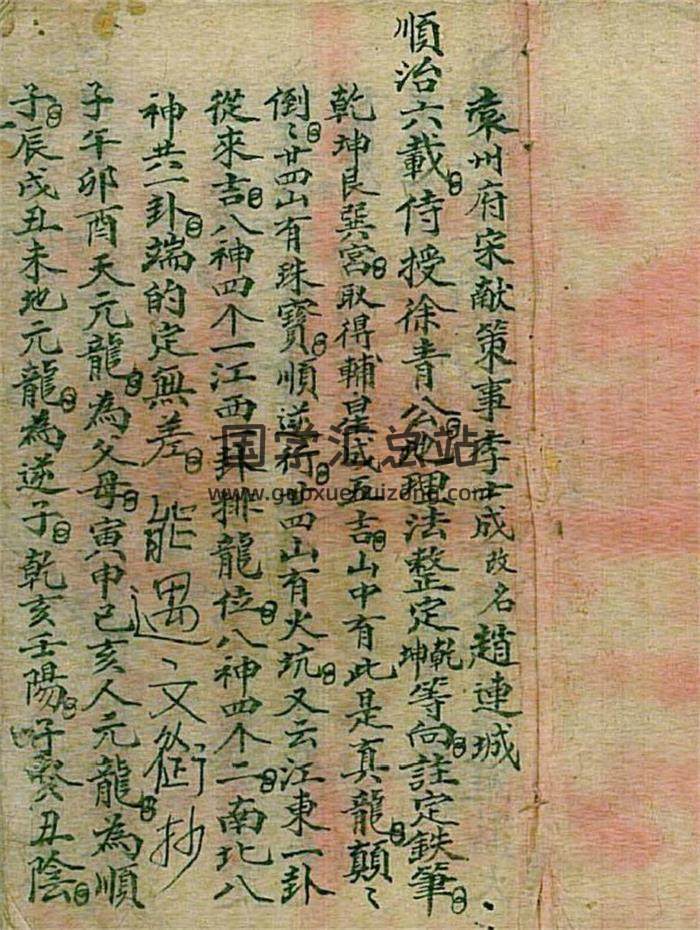 袁州府宋献策事李士成改名趙連城
順治六載侍授徐青公地理法整定乾坤等向註定鉄筆
乾坤艮巽宮取得輔星成五吉山中有此是真龍顛〻
倒〻廿四山有珠寳順逆行廿四山有火坑又云江東一卦
從來吉八神四个一江西卦排龍位八神四个二南北八
神共一卦端的定無差 能遇文衡抄
子午卯酉天元龍為父母寅申巳亥人元龍為順
子辰戌丑未地元龍為逆子乾亥壬陽子癸丑陰
国学汇总站
www.guoxuehuizong.com